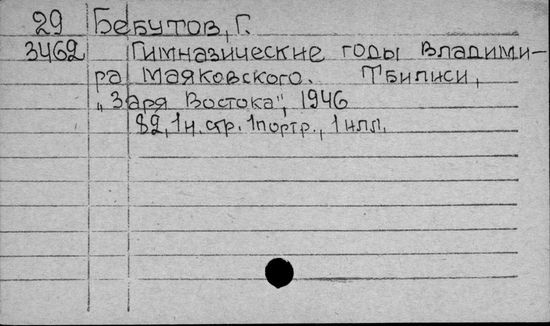 29 Бебутов, Г.
3462 Гимназические годы Владими-
ра Маяковского. Тбилиси,
„Заря Востока", 1946
82, 1 н. стр. 1 портр., 1 илл.